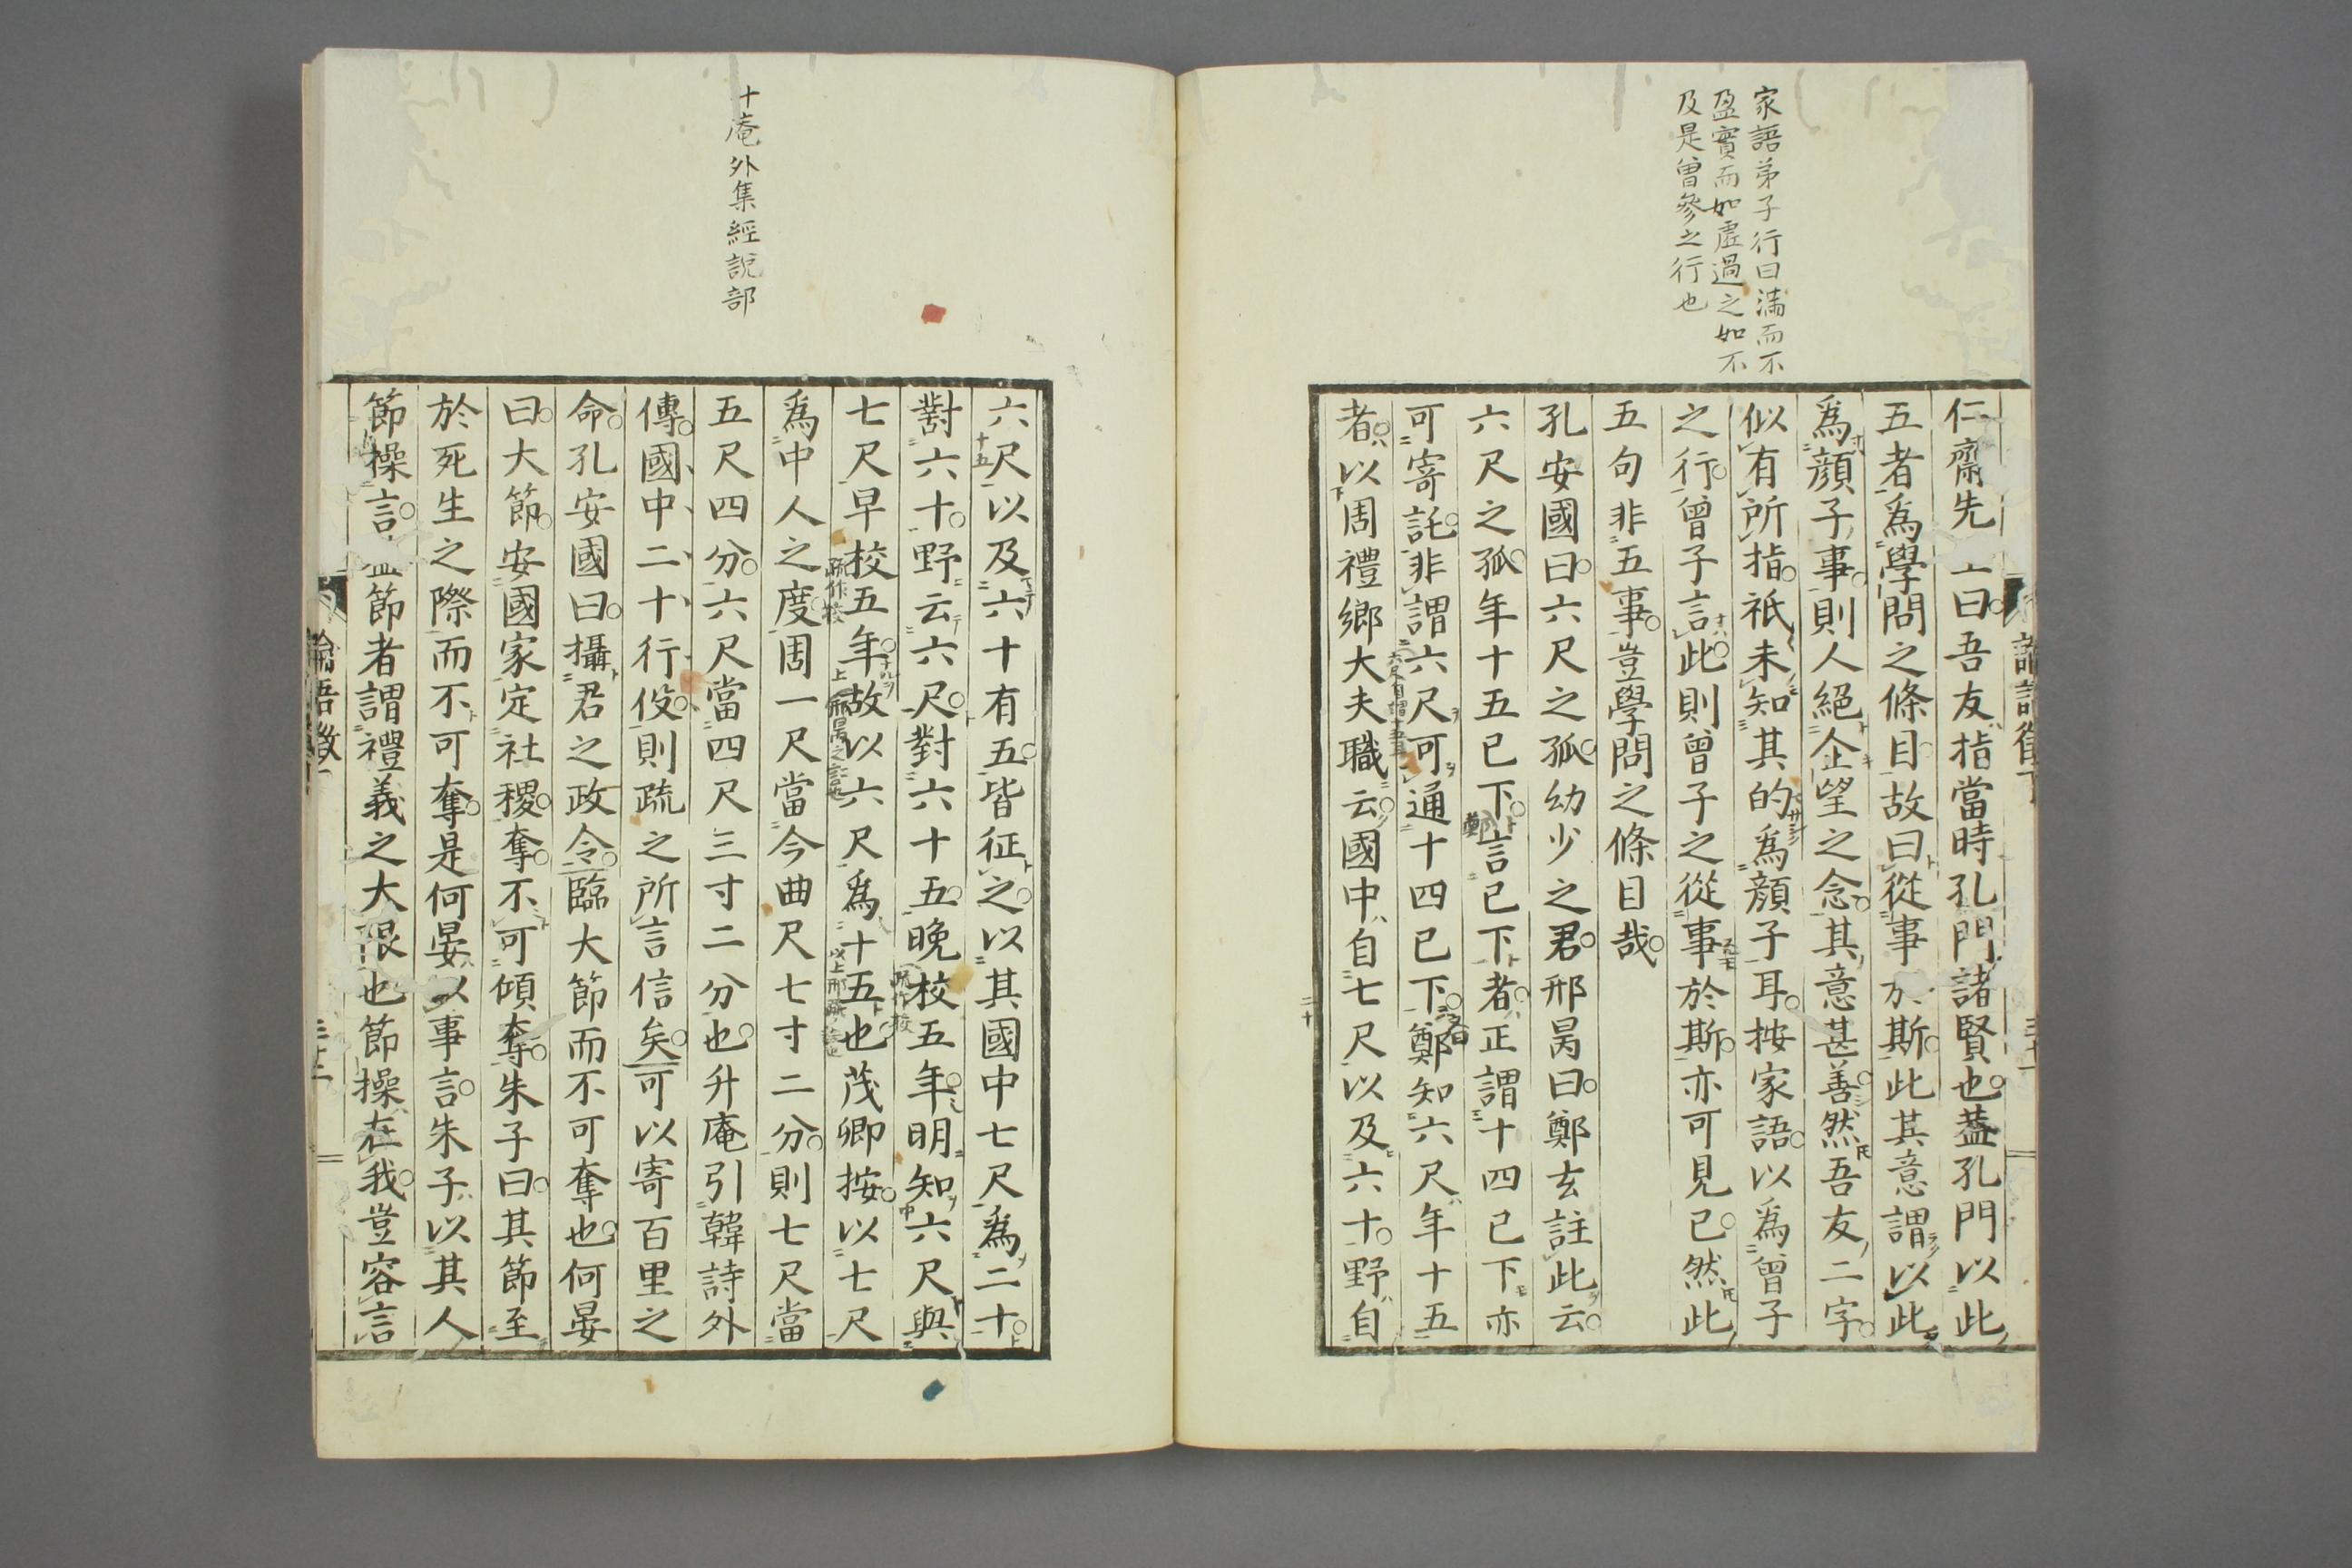 家語弟子行曰滿而不
盈實而如虛過之如不
及是曾參之行也
仁齋先曰吾友指當時孔門諸賢也蓋孔門以此
五者爲學問之條目故曰從事於斯此其意謂以此
爲顏子事則人絕企望之念其意甚善然吾友二字
似有所指祇未知其的爲顏子耳按家語以爲曾子
之行曾子言此則曾子之從事於斯亦可見已然此
五句非五事豈學問之條目哉
孔安國曰六尺之孤幼少之君邢昺曰鄭玄註此云
六尺之孤年十五已下言已下者正謂十四已下亦
可寄託非謂六尺可通十四已下鄭知六尺年十五
者以周禮鄉大夫職云國中自七尺以及六十野自
二十
十庵外集經說部
六尺以及六十有五皆征之以其國中七尺爲二十
十五
對六十野云六尺對六十五晚校五年明知六尺與
疏作挍
七尺早校五年故以六尺爲十五也茂卿按以七尺
疏作挍
爲中人之度周一尺當今曲尺七寸二分則七尺當
五尺四分六尺當四尺三寸二分也升庵引韓詩外
傳國中二十行役則疏之所言信矣可以寄百里之
命孔安國曰攝君之政令臨大節而不可奪也何晏
曰大節安國家定社稷奪不可傾奪朱子曰其節至
於死生之際而不可奪是何晏以事言朱子以其人
節操言蓋節者謂禮義之大限也節操在我豈容言
論語徵